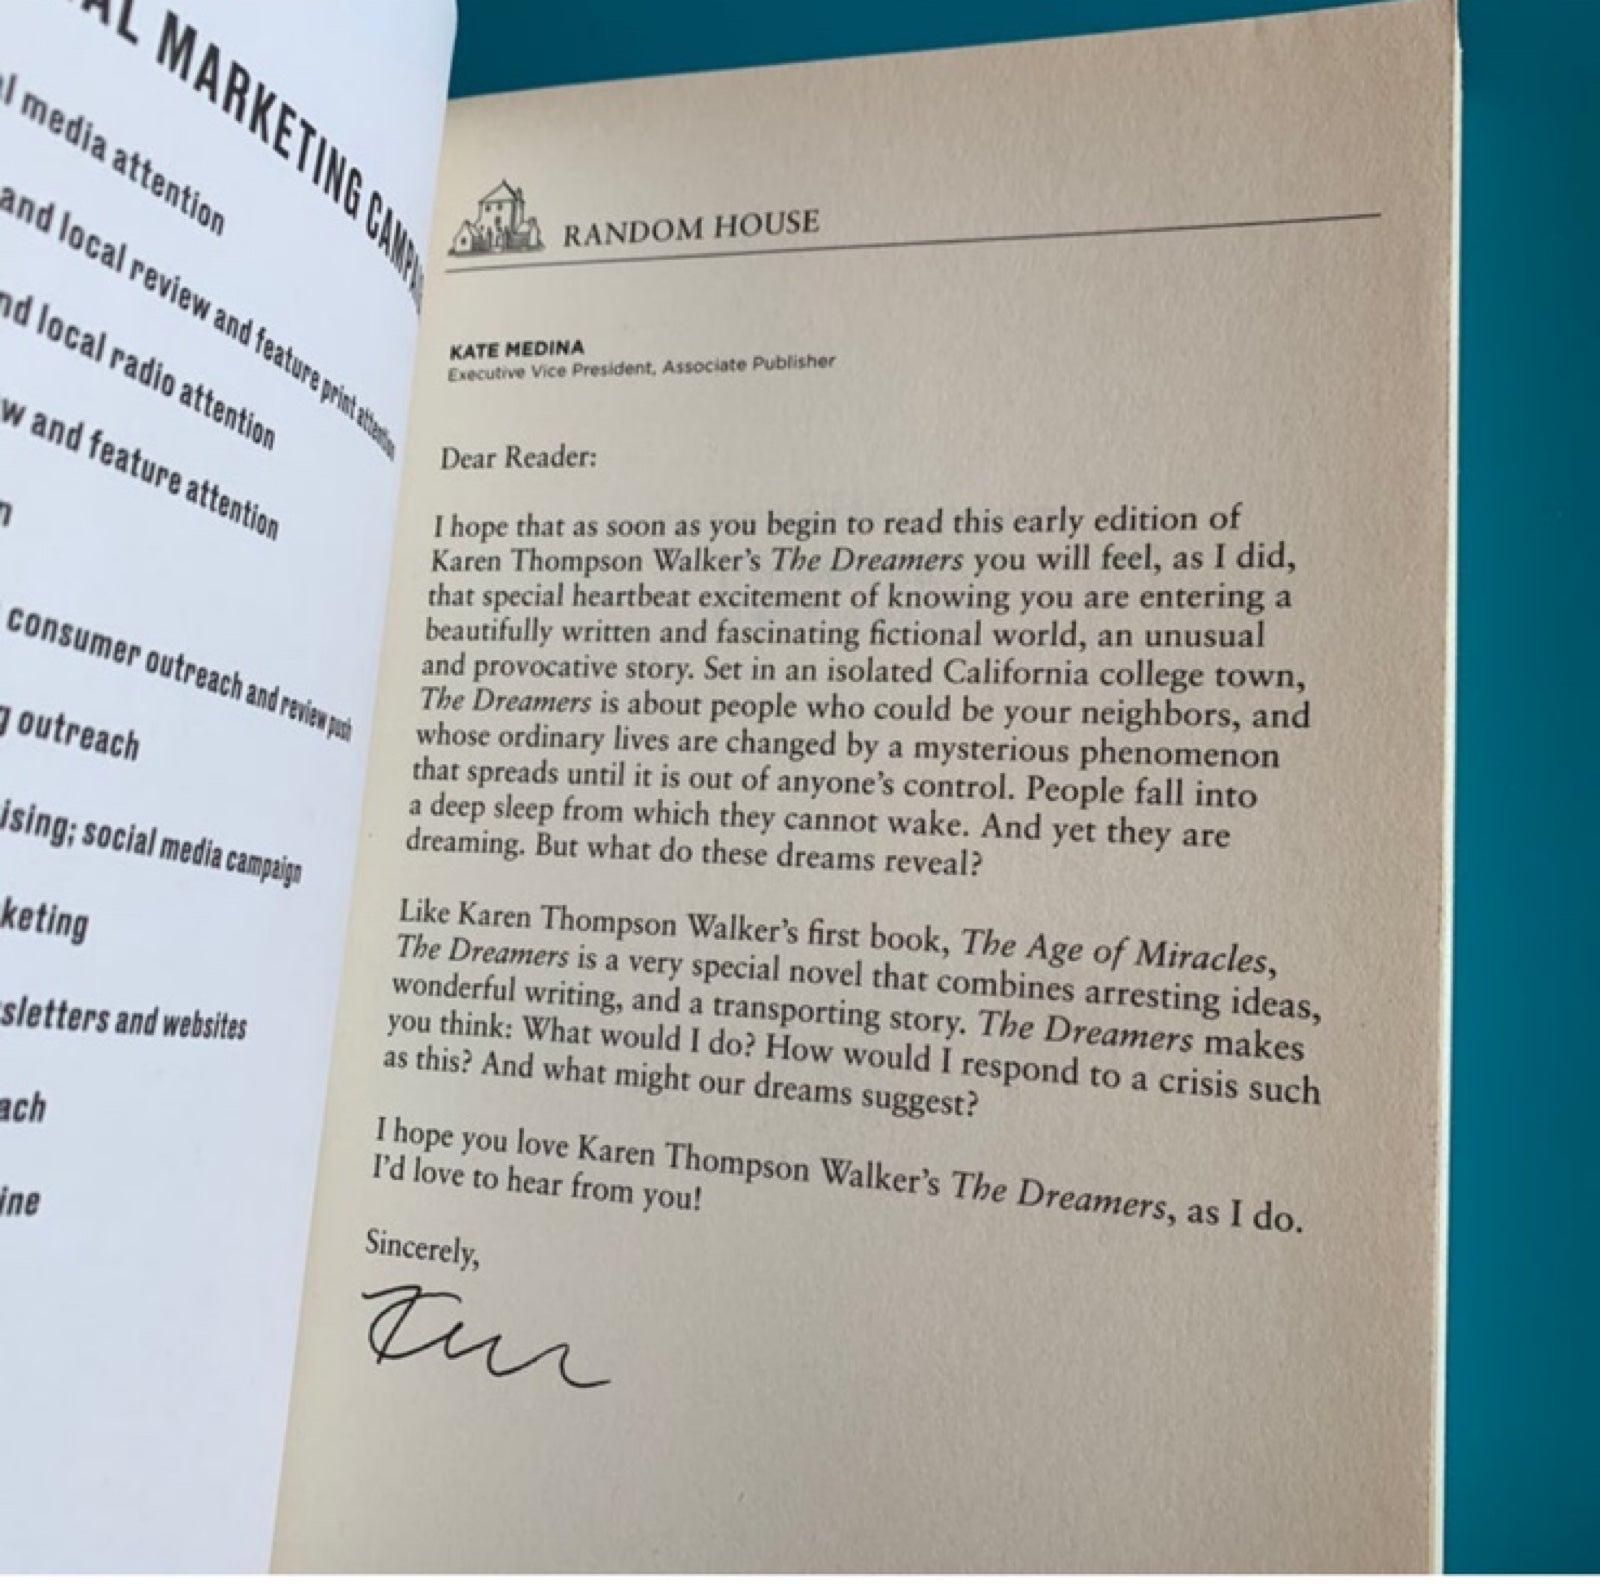 MARKETING
media attention
and local review and feature print attention
local radio attention
and feature attention
consumer outreach and review push
outreach
social media campaign
and websites
RANDOM HOUSE
KATE MEDINA
Executive Vice President, Associate Publisher
Dear Reader:
I hope that as soon as you begin to read this early edition of
Karen Thompson Walker's The Dreamers you will feel, as I did,
that special heartbeat excitement of knowing you are entering a
beautifully written and fascinating fictional world, an unusual
and provocative story. Set in an isolated California college town,
The Dreamers is about people who could be your neighbors, and
whose ordinary lives are changed by a mysterious phenomenon
that spreads until it is out of anyone's control. People fall into
a deep sleep from which they cannot wake. And yet they are
dreaming. But what do these dreams reveal?
Like Karen Thompson Walker's first book, The Age of Miracles,
The Dreamers is a very special novel that combines arresting ideas,
wonderful writing, and a transporting story. The Dreamers makes
you think: What would I do? How would I respond to a crisis such
as this? And what might our dreams suggest?
I hope you love Karen Thompson Walker's The Dreamers, as I do.
I'd love to hear from you!
Sincerely,